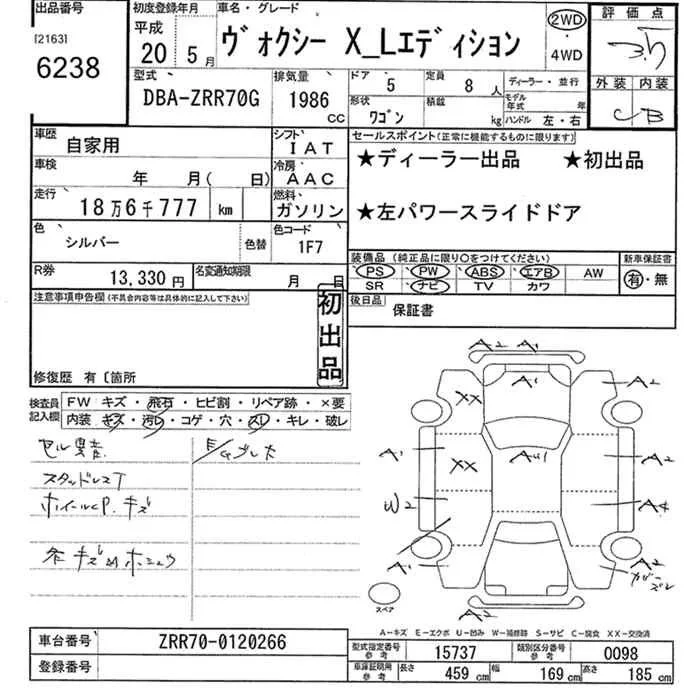 出品番号
[2163]
6238
初度登録年月
平成
20 5月
車名・グレード
ヴォクシー X_Lエディション
2WD
・
4WD
評価点
3.5
外装 内装
C B
型式
DBA-ZRR70G
排気量
1986
cc
ドア
5
定員
8 人
形状
ワゴン
積載
kg
ディーラー・並行
モデル年式 年
ハンドル 左・右
車歴
自家用
シフト
IAT
車検
年 月( 日)
冷房
AAC
走行
18万6千777 km
燃料
ガソリン
色
シルバー
色替
色コード
1F7
R券
13,330円
名変通知期限
月 日
セールスポイント(正常に機能するものに限ります)
★ディーラー出品 ★初出品
★左パワースライドドア
装備品(純正品に限り〇をつけてください)
PS PW ABS エアB AW
SR ナビ TV カワ
新車保証書
有・無
後日品
保証書
注意事項申告欄(不具合内容等は具体的に記入して下さい)
初出品
修復歴 有〔箇所
検査員記入欄
FW キズ・飛石・ヒビ割・リペア跡・×要
内装 キズ・汚れ・コゲ・穴・スレ・キレ・破レ
スタッドレスT
ホイールCP. キズ
A2 A1
XX A1 A2
A1 XX A2
W2 A4
A1 A2
A2
スペア
A−キズ E−エクボ U−凹み W−補修跡 S−サビ C−腐食 XX−交換済
車台番号
ZRR70-0120266
登録番号
型式指定番号
参考
15737
類別区分番号
参考
0098
車庫証明用
参考
長さ 459 cm 幅 169 cm 高さ 185 cm